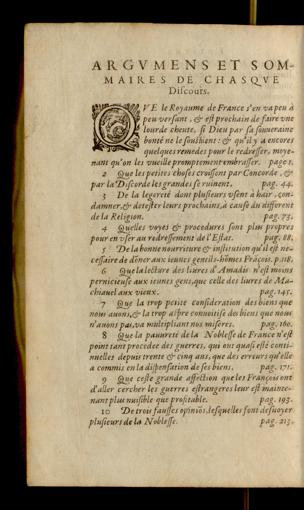 ARGVMENS ET SOM-
MAIRES DE CHASQVE
Diſcours.
QVE le Royaume de France s'en va peu à
peu verſant, & eſt prochain de faire vne
lourde cheute, ſi Dieu par ſa ſouueraine
bonté ne le ſouſtient: & qu'il y a encores
quelques remedes pour le redreſſer, moye-
nant qu'on les vueille promptement embraſſer. page 1.
2 Que les petites choſes croiſſent par Concorde, &
par la Diſcorde les grandes ſe ruinent. pag. 44.
3 De la legereté dont pluſieurs vſent à haïr, con-
damner, & deteſter leurs prochains, à cauſe du different
de la Religion. pag. 73.
4 Quelles voyes & procedures ſont plus propres
pour en vſer au redreſſement de l'Eſtat. pag. 88.
5 De la bonne nourriture & inſtitution qu'il eſt ne-
ceſſaire de dõner aux ieunes gentils-hõmes Frãçois. p.118.
6 Que la lecture des liures d'Amadis n'eſt moins
pernicieuſe aux ieunes gens, que celle des liures de Ma-
chiauel aux vieux. pag. 145.
7 Que la trop petite conſideration des biens que
nous auons, & la trop aſpre conuoitiſe des biens que nous
n'auons pas, va multipliant nos miſeres. pag. 160.
8 Que la pauureté de la Nobleſſe de France n'eſt
point tant procedee des guerres, qui ont quaſi eſté conti-
nuelles depuis trente & cinq ans, que des erreurs qu'elle
a commis en la diſpenſation de ses biens. pag. 171.
9 Que ceſte grande affection que les François ont
d'aller cercher les guerres eſtrangeres leur eſt mainte-
nant plus nuiſible que profitable. pag. 193.
10 De trois fauſſes opiniõs, leſquelles font deſuoyer
pluſieurs de la Nobleſſe. pag. 213.